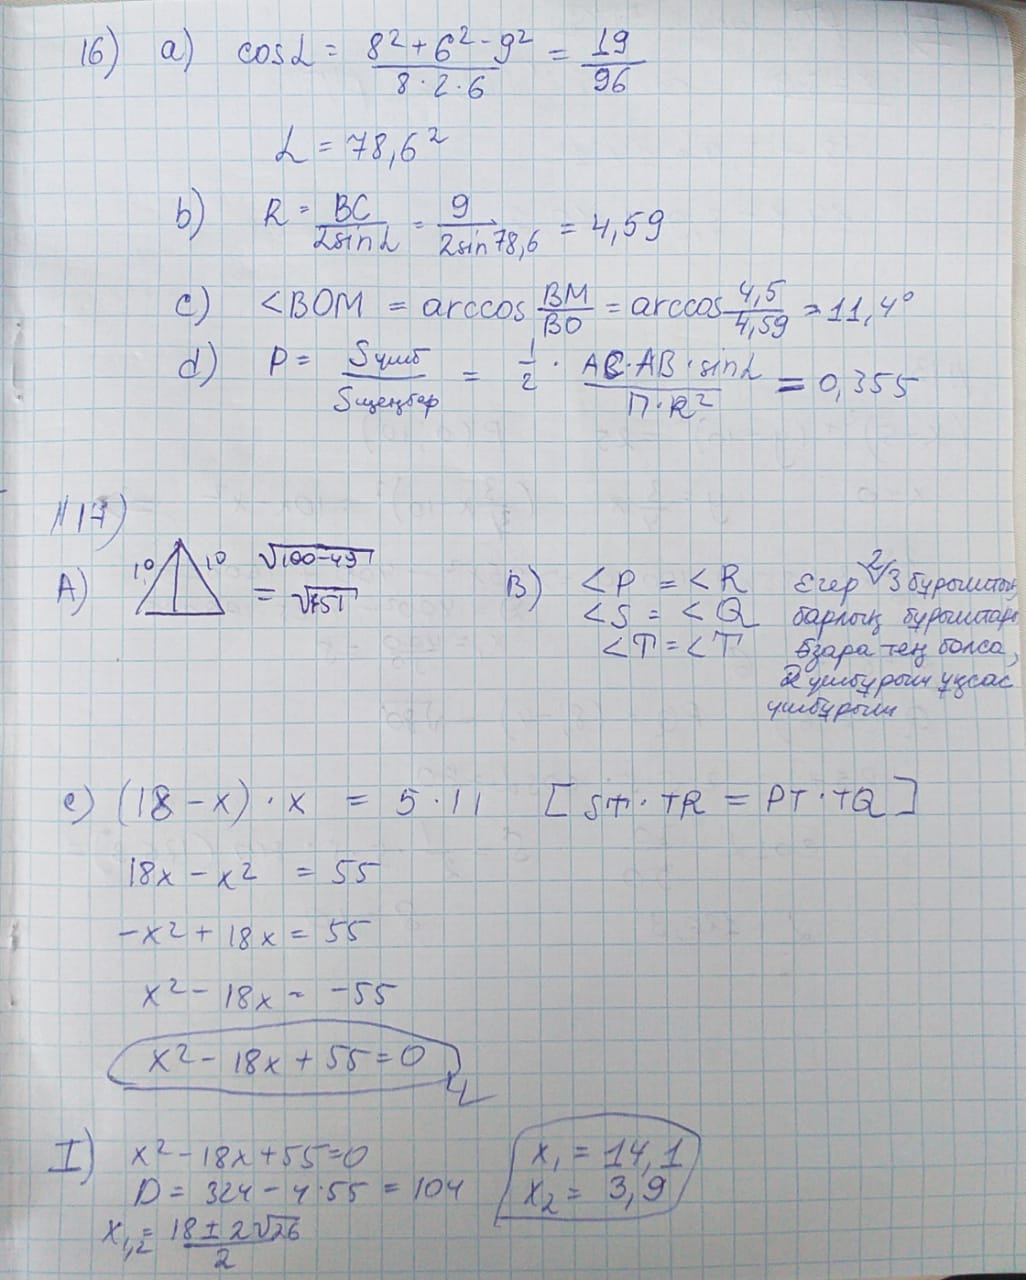 16) a) cos α = (8² + 6² - 9²) / (8 · 2 · 6) = 19/96
α = 78,6²
b) R = BC / (2 sin α) = 9 / (2 sin 78,6) = 4,59
c) <BOM = arccos BM/BO = arccos 4,5/4,59 = 11,4°
d) P = Sүшб / Sшеңбер = 1/2 · (AC · AB · sin α) / (П · R²) = 0,355
№17)
A) 10 10 √100-49
= √51
B) <P = <R Егер 2 Δ 3 бұрыштың
<S = <Q барлық бұрыштары
<T = <T өзара тең болса,
2 үшбұрыш ұқсас
үшбұрыш
c) (18 - x) · x = 5 · 11 [ST · TR = PT · TQ]
18x - x² = 55
-x² + 18x = 55
x² - 18x = -55
x² - 18x + 55 = 0
I) x² - 18x + 55 = 0
D = 324 - 4·55 = 104
x₁,₂ = (18 ± 2√26) / 2
x₁ = 14,1
x₂ = 3,9